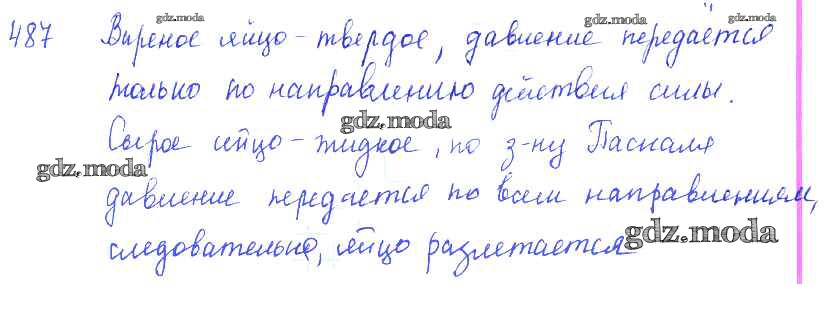 gdz.moda gdz.moda gdz.moda
487 Вареное яйцо - твердое, давление передаётся
только по направлению действия силы.
gdz.moda
Сырое яйцо - жидкое, по з-ну Паскаля
gdz.moda
давление передается по всем направлениям,
следовательно, яйцо разлетается
gdz.moda